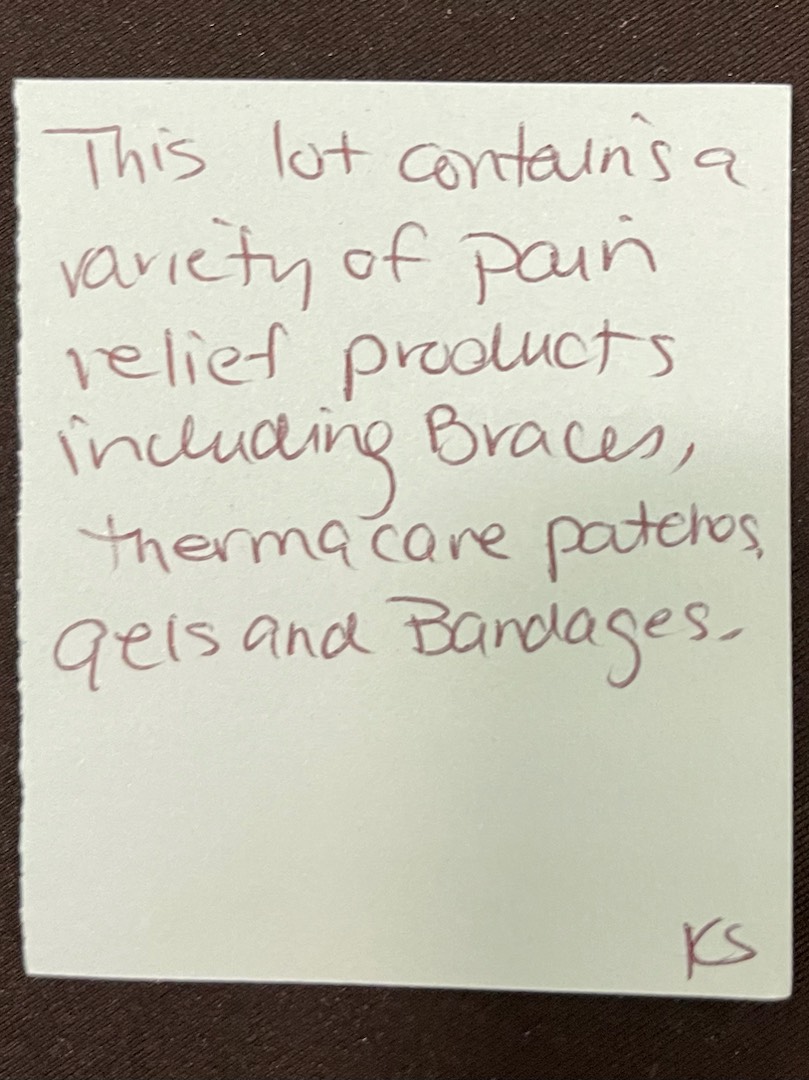 This lot contains a
variety of pain
relief products
including Braces,
thermacare patches,
gels and Bandages.
KS